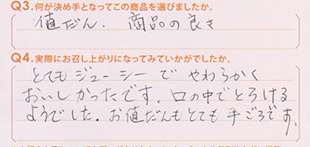 Q3.何が決め手となってこの商品を選びましたか。
値だん、商品の良さ
Q4.実際にお召し上がりになってみていかがでしたか。
とてもジューシーでやわらかく
おいしかったです。口の中でとろける
ようでした。お値だんもとても手ごろです。